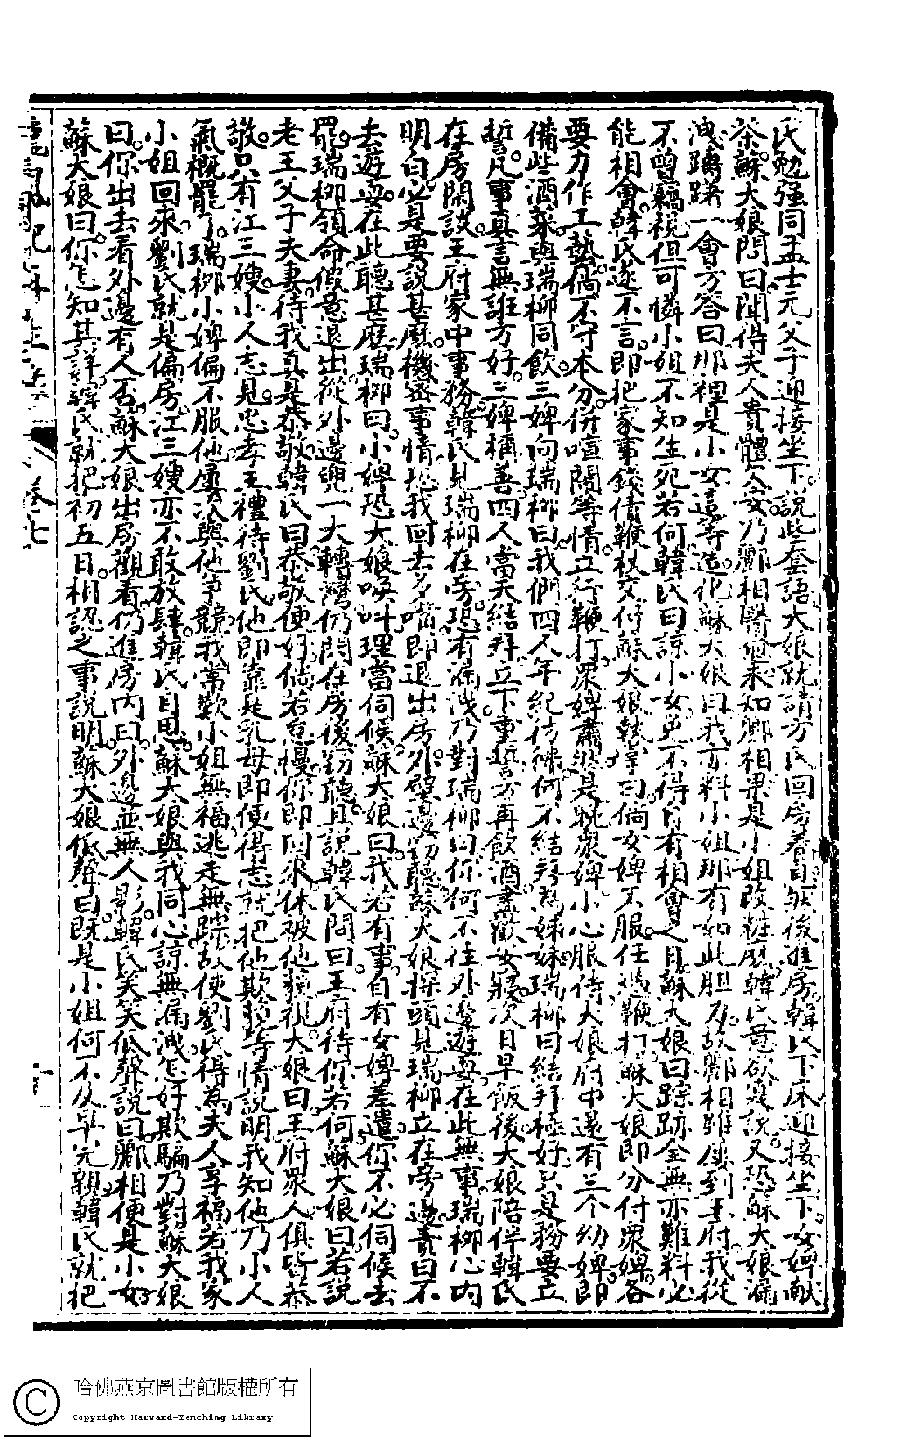 氏勉强同孟士元父子迎接坐下說些套語大娘就請方氏回房養目然後進房韓氏下床迎接坐下女婢献
茶蘇大娘問曰聞得夫人貴體欠安乃酈相醫愈未知酈相果是小姐改粧否韓氏意欲寔說又恐蘇大娘漏
洩躊躇一會方答曰那裡是小女這等造化蘇大娘曰我亦料小姐那有如此胆力故酈相雖屢到王府我從
不曾竊視但可憐小姐不知生死若何韓氏曰諒小女豈不得有相會之日蘇大娘曰踪跡全無亦難料必
能相會韓氏遂不言即把家事錢債鞭杖交付蘇大娘執掌曰倘女婢不服任憑鞭打蘇大娘即分付眾婢各
要力作工藝倘不守本分併喧鬧等情立行鞭打眾婢肅然是晚眾婢小心服侍大娘府中還有三个幼婢即
備些酒菜與瑞柳同飲三婢向瑞柳曰我們四人年紀彷彿何不結拜為姊妹瑞柳曰結拜極好只是務要立
誓凡事真言無誑方好三婢稱善四人當天結拜立下重誓方再飲酒盡歡安寢次日早飯後大娘陪伴韓氏
在房閑說王府家中事務韓氏見瑞柳在旁恐有漏洩乃對瑞柳曰你何不往外邊遊耍在此無事瑞柳心內
明白必是要說甚麽機密事情恐我回去多嘴即退出房外壁邊竊聽蘇大娘探頭見瑞柳立在旁邊責曰不
去遊耍在此聽甚麽瑞柳曰小婢恐大娘喚叫理當伺候蘇大娘曰我若有事自有女婢差遣你不必伺候去
罷瑞柳領命假意退出從外邊兜一大轉灣仍閃在房後竊聽且說韓氏問曰王府待你若何蘇大娘曰若說
老王父子夫妻待我真是恭敬韓氏曰恭敬便好倘若怠慢你即回來休被他藐視大娘曰王府眾人俱皆恭
敬只有江三嫂小人志見忠孝王禮待劉氏他即靠是乳母即便得志就把他欺負等情說明我知他乃小人
氣概罷了瑞柳小婢偏不服他屢次與他爭競我常歎小姐無福逃走無踪故使劉氏得為夫人享福若我家
小姐回來劉氏就是偏房江三嫂亦不敢放肆韓氏自思蘇大娘與我同心諒無漏洩怎好欺騙乃對蘇大娘
曰你出去看外邊有人否蘇大娘出房觀看仍進房內曰外邊並無人影韓氏笑笑低聲說曰酈相便是小女
蘇大娘曰你怎知其詳韓氏就把初五日相認之事說明蘇大娘低聲曰既是小姐何不及早完親韓氏就把
卷七
哈佛燕京圖書館版權所有
Copyright Harvard-Yenching Library